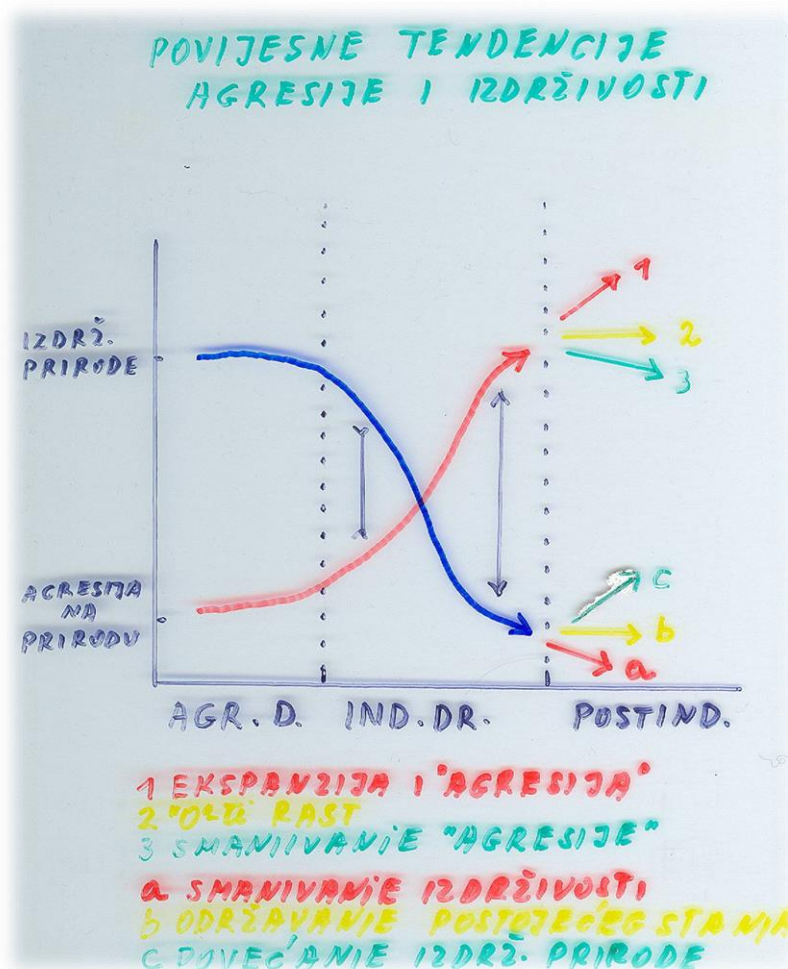 POVIJESNE TENDENCIJE
AGRESIJE I IZDRŽIVOSTI
1
IZDRŽ.
PRIRODE
2
3
AGRESIJA
NA
PRIRODU
c
b
a
AGR. D. IND. DR. POSTIND.
1 EKSPANZIJA I "AGRESIJA"
2 RAST
3 SMANJIVANJE "AGRESIJE"
a SMANIVANJE IZDRŽIVOSTI
b ODRŽAVANJE POSTOJEĆEG STANJA
C POVEĆANJE IZDRŽ. PRIRODE